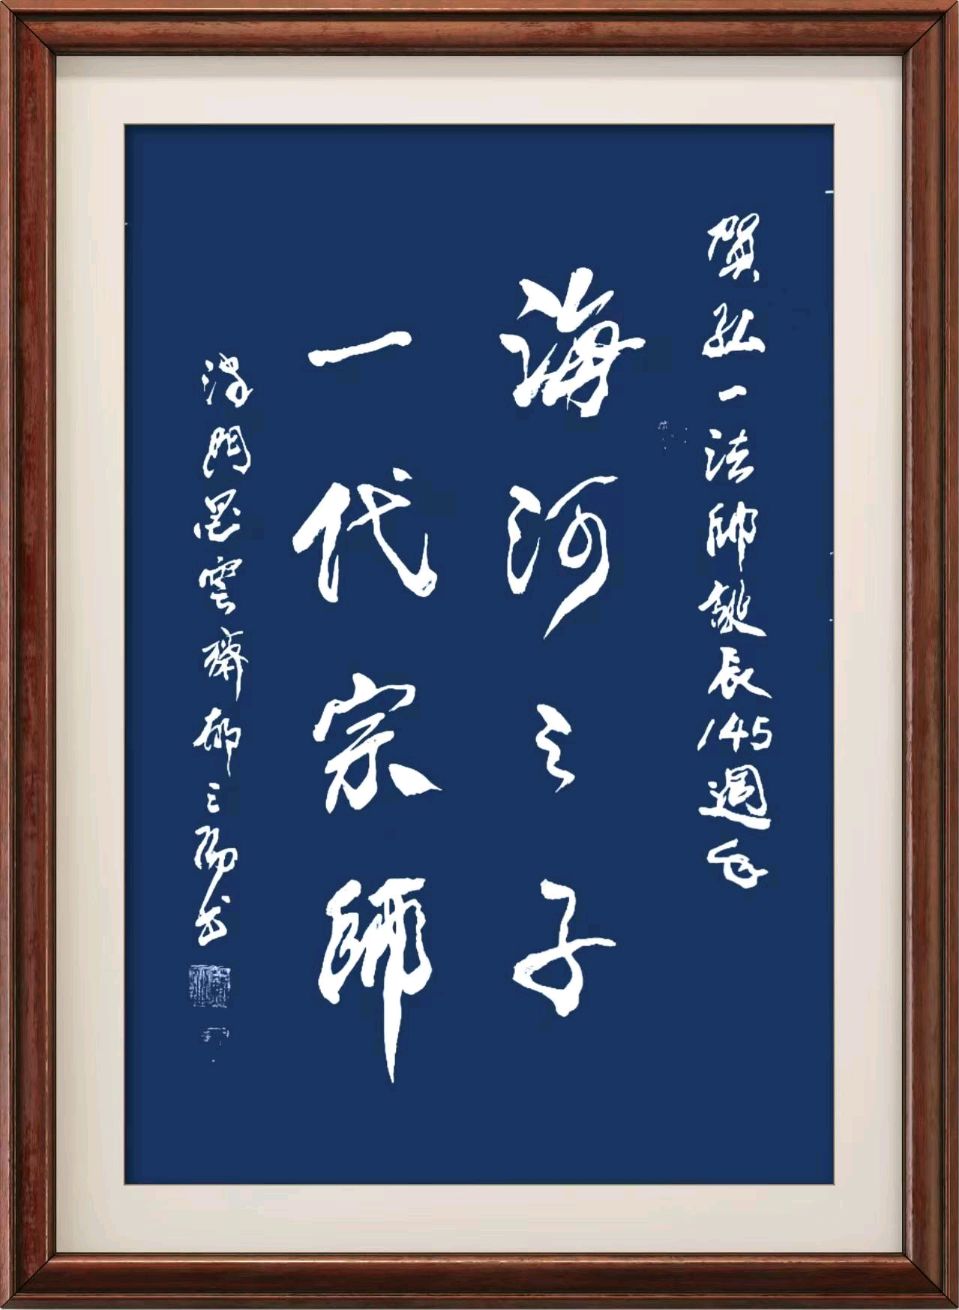 賀弘一法師誕辰145週年
海河之子
一代宗師
津門墨雲齋郁之陽書